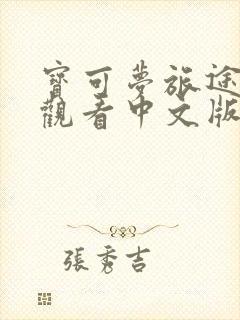 寶可夢旅途
觀看中文版
張秀吉